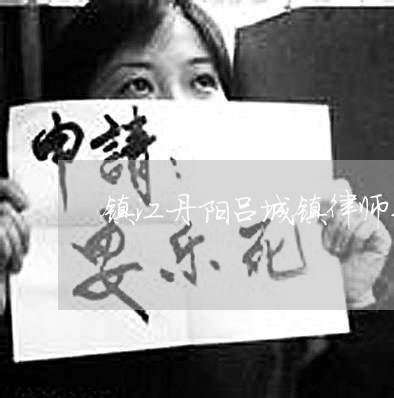 申請:
镇江丹阳吕城镇律师
安乐死